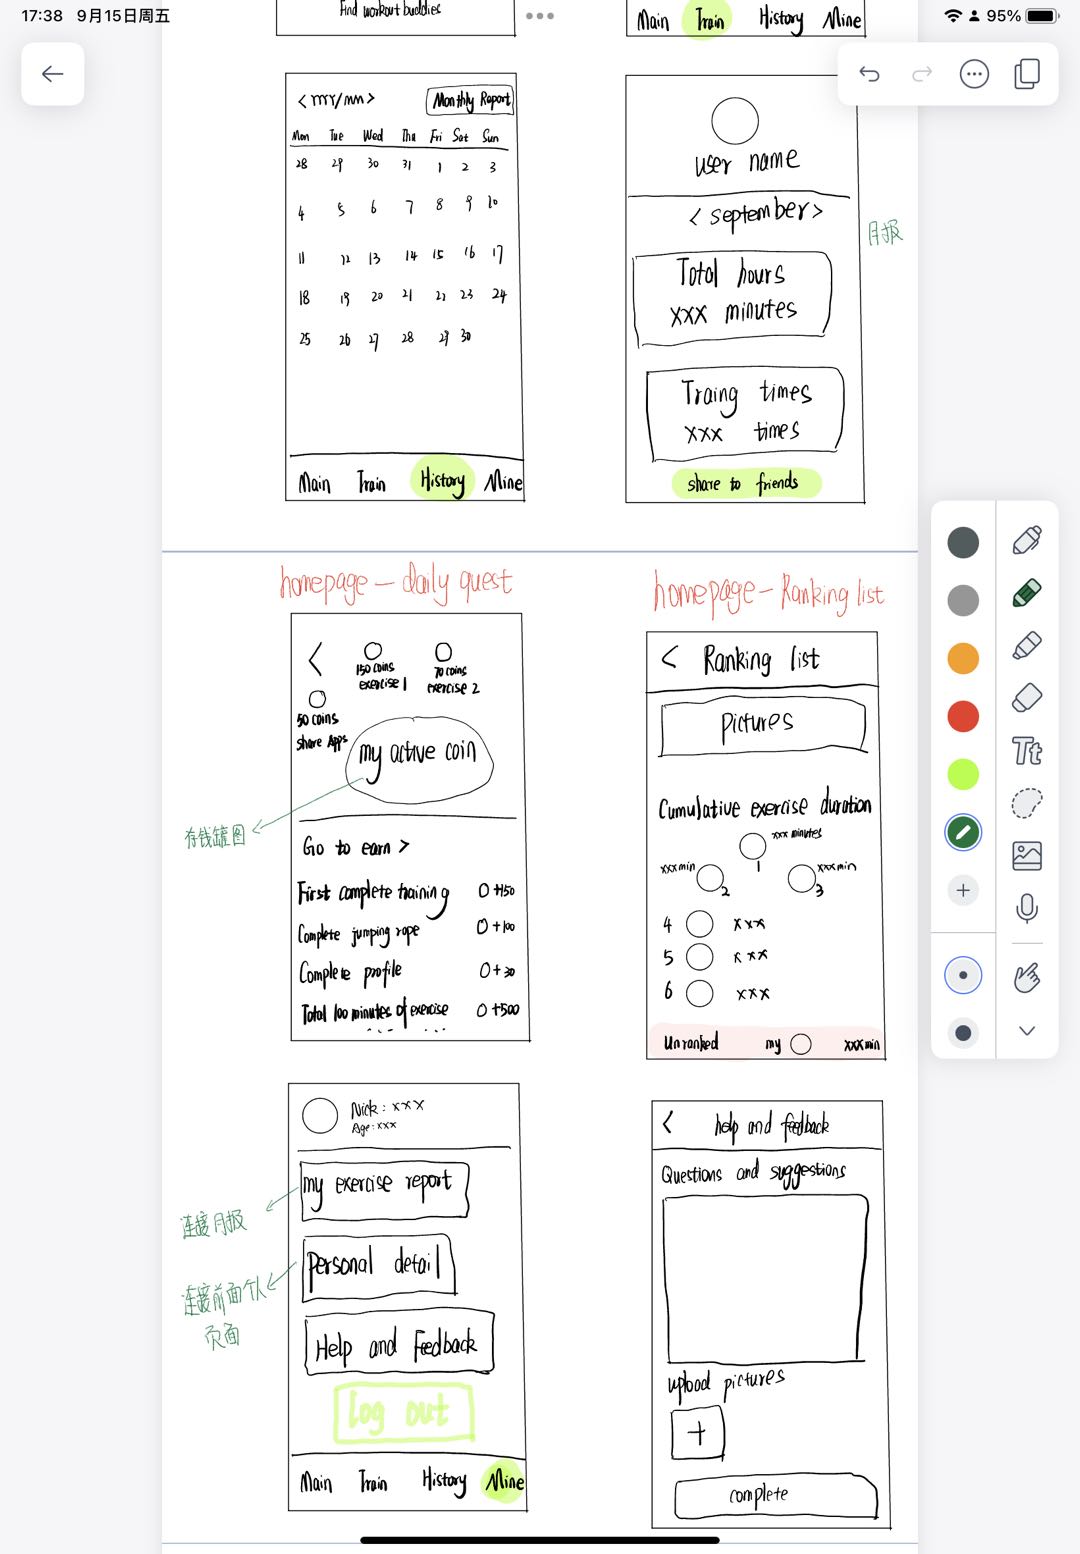 17:38 9月15日周五
95%
Find workout buddies
Main Train History Mine
< mm/nn >
Monthly Report
Mon Tue Wed Thu Fri Sat Sun
28 29 30 31 1 2 3
4 5 6 7 8 9 10
11 12 13 14 15 16 17
18 19 20 21 22 23 24
25 26 27 28 29 30
Main Train History Mine
user name
< september >
月报
Total hours
xxx minutes
Traing times
xxx times
share to friends
homepage — daily quest
<
150 coins
exercise 1
70 coins
exercise 2
50 coins
share Apps
my active coin
存钱罐图
Go to earn >
First complete training +150
Complete jumping rope +100
Complete profile +30
Total 100 minutes of exercise +500
homepage — Ranking list
< Ranking list
Pictures
Cumulative exercise duration
xxx minutes
1
xxx min
2
xxx min
3
4 xxx
5 xxx
6 xxx
Unranked my xxx min
Nick: xxx
Age: xxx
my exercise report
连接月报
Personal detail
连接前面个人
页面
Help and Feedback
log out
Main Train History Mine
< help and feedback
Questions and suggestions
upload pictures
+
complete
Tt